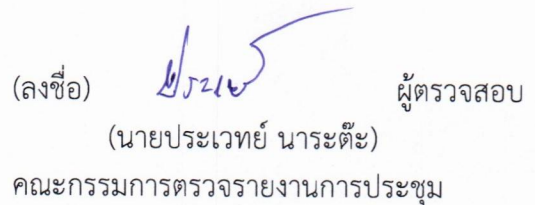 (ลงชื่อ) ผู้ตรวจสอบ
(นายประเวทย์ นาระต๊ะ)
คณะกรรมการตรวจรายงานการประชุม